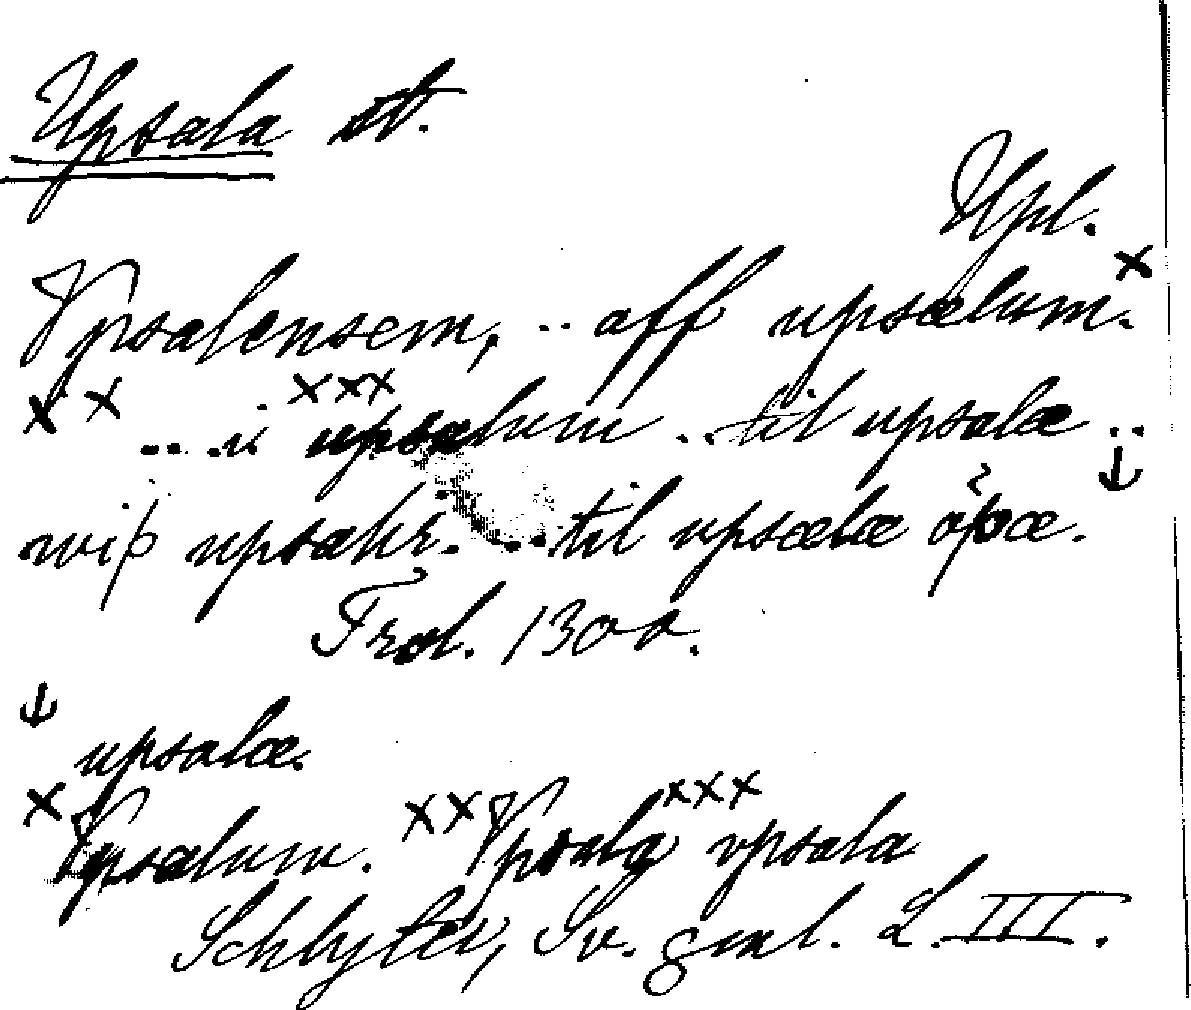 Upsala st.
Upl.
Vpsalensem, .. aff upsælum. ×
× × .. i ××× upsalum .. til upsalæ ..
wiþ upsalir. .. til upsælæ öþæ.
Frol. 1300.
upsalæ.
× Vpsalum. ×× Vpsala ××× vpsala
Schlyter, Sv. gml. L. III.